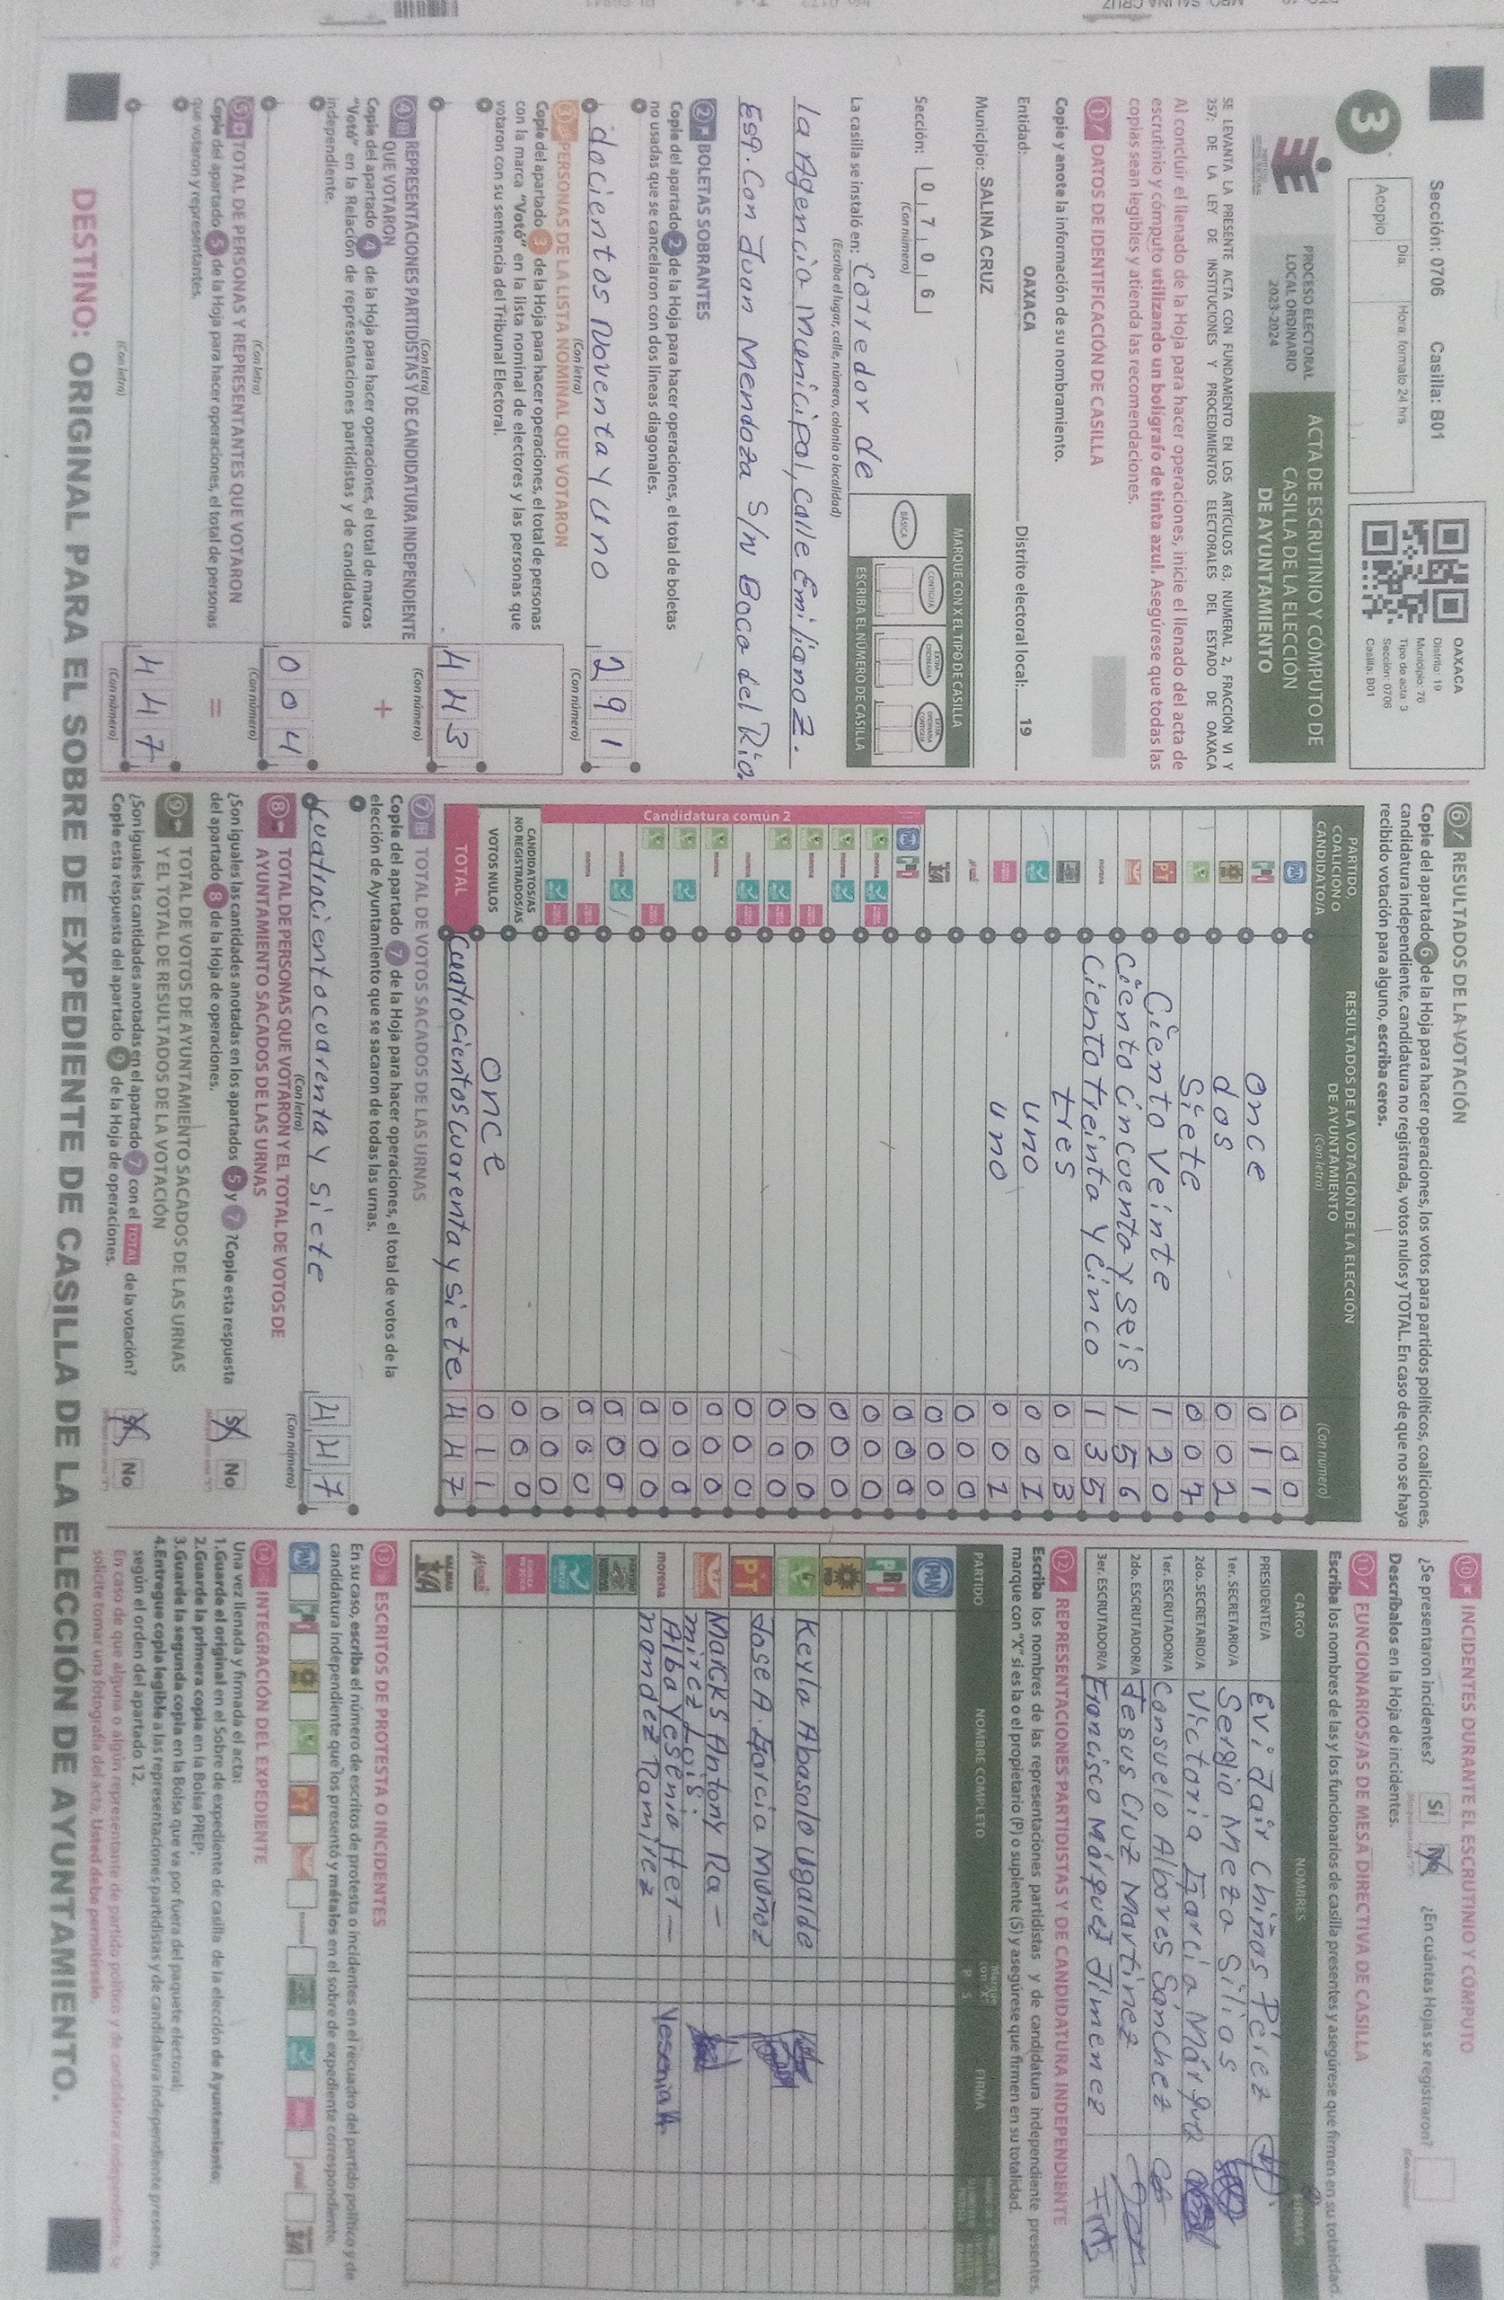 Sección: 0706 Casilla: B01
Día: Hora: formato 24 hrs
3 Acopio
OAXACA
Distrito: 19
Municipio: 76
Tipo de acta: 3
Sección: 0706
Casilla: B01
PROCESO ELECTORAL
LOCAL ORDINARIO
2023-2024
ACTA DE ESCRUTINIO Y CÓMPUTO DE
CASILLA DE LA ELECCIÓN
DE AYUNTAMIENTO
SE LEVANTA LA PRESENTE ACTA CON FUNDAMENTO EN LOS ARTÍCULOS 63, NUMERAL 2, FRACCIÓN VI Y
257; DE LA LEY DE INSTITUCIONES Y PROCEDIMIENTOS ELECTORALES DEL ESTADO DE OAXACA
Al concluir el llenado de la Hoja para hacer operaciones, inicie el llenado del acta de
escrutinio y cómputo utilizando un bolígrafo de tinta azul. Asegúrese que todas las
copias sean legibles y atienda las recomendaciones.
1 DATOS DE IDENTIFICACIÓN DE CASILLA
Copie y anote la información de su nombramiento.
Entidad: OAXACA Distrito electoral local: 19
Municipio: SALINA CRUZ
Sección: 0 7 0 6
(Con número)
MARQUE CON X EL TIPO DE CASILLA
BÁSICA CONTIGUA
ESCRIBA EL NÚMERO DE CASILLA
La casilla se instaló en: Corredor de
(Escriba el lugar, calle, número, colonia o localidad)
la Agencia Municipal, Calle Emiliano Z.
Esq. Con Juan Mendoza S/N Boca del Rio.
2 BOLETAS SOBRANTES
Copie del apartado 2 de la Hoja para hacer operaciones, el total de boletas
no usadas que se cancelaron con dos líneas diagonales.
docientos Noventa y uno 2 9 1
(Con letra) (Con número)
3 PERSONAS DE LA LISTA NOMINAL QUE VOTARON
Copie del apartado 3 de la Hoja para hacer operaciones, el total de personas
con la marca "Votó" en la lista nominal de electores y las personas que
votaron con su sentencia del Tribunal Electoral.
4 4 3
(Con letra) (Con número)
4 REPRESENTACIONES PARTIDISTAS Y DE CANDIDATURA INDEPENDIENTE
QUE VOTARON
Copie del apartado 4 de la Hoja para hacer operaciones, el total de marcas
"Votó" en la Relación de representaciones partidistas y de candidatura
independiente.
+
0 0 4
(Con letra) (Con número)
5 TOTAL DE PERSONAS Y REPRESENTANTES QUE VOTARON
Copie del apartado 5 de la Hoja para hacer operaciones, el total de personas
que votaron y representantes.
=
4 4 7
(Con letra) (Con número)
6 RESULTADOS DE LA VOTACIÓN
Copie del apartado 6 de la Hoja para hacer operaciones, los votos para partidos políticos, coaliciones,
candidatura independiente, candidatura no registrada, votos nulos y TOTAL. En caso de que no se haya
recibido votación para alguno, escriba ceros.
PARTIDO,
COALICIÓN O
CANDIDATO/A
RESULTADOS DE LA VOTACIÓN DE LA ELECCIÓN
DE AYUNTAMIENTO
(Con letra) (Con número)
PAN 0 0 0
PRI once 0 1 1
dos 0 0 2
Siete 0 0 7
PT Ciento veinte 1 2 0
Ciento cincoenta y seis 1 5 6
morena Ciento treinta y cinco 1 3 5
tres 0 0 3
uno 0 0 1
uno 0 0 1
0 0 0
0 0 0
0 0 0
Candidatura común 2
0 0 0
0 0 0
0 0 0
0 0 0
0 0 0
0 0 0
0 0 0
0 0 0
0 0 0
0 0 0
0 0 0
CANDIDATOS/AS
NO REGISTRADOS/AS 0 0 0
VOTOS NULOS once 0 1 1
TOTAL Cuatrocientos cuarenta y siete 4 4 7
7 TOTAL DE VOTOS SACADOS DE LAS URNAS
Copie del apartado 7 de la Hoja para hacer operaciones, el total de votos de la
elección de Ayuntamiento que se sacaron de todas las urnas.
Cuatrociento cuarenta y siete 4 4 7
(Con letra) (Con número)
8 TOTAL DE PERSONAS QUE VOTARON Y EL TOTAL DE VOTOS DE
AYUNTAMIENTO SACADOS DE LAS URNAS
¿Son iguales las cantidades anotadas en los apartados 5 y 7? Copie esta respuesta
del apartado 8 de la Hoja de operaciones.
Sí No
9 TOTAL DE VOTOS DE AYUNTAMIENTO SACADOS DE LAS URNAS
Y EL TOTAL DE RESULTADOS DE LA VOTACIÓN
¿Son iguales las cantidades anotadas en el apartado 7 con el TOTAL de la votación?
Copie esta respuesta del apartado 9 de la Hoja de operaciones.
Sí No
10 INCIDENTES DURANTE EL ESCRUTINIO Y CÓMPUTO
¿Se presentaron incidentes? Sí No ¿En cuántas Hojas se registraron?
Descríbalos en la Hoja de incidentes.
11 FUNCIONARIOS/AS DE MESA DIRECTIVA DE CASILLA
Escriba los nombres de las y los funcionarios de casilla presentes y asegúrese que firmen en su totalidad.
CARGO NOMBRES FIRMAS
PRESIDENTE/A Evi dair Chiñas Pérez
1er. SECRETARIO/A Sergio Meza Silias
2do. SECRETARIO/A Victoria García Márquez
1er. ESCRUTADOR/A Consuelo Albores Sánchez
2do. ESCRUTADOR/A Jesus Cruz Martinez
3er. ESCRUTADOR/A Francisco Márquez Jimenez
12 REPRESENTACIONES PARTIDISTAS Y DE CANDIDATURA INDEPENDIENTE
Escriba los nombres de las representaciones partidistas y de candidatura independiente presentes,
marque con "X" si es la o el propietario (P) o suplente (S) y asegúrese que firmen en su totalidad.
PARTIDO NOMBRE COMPLETO Marque con "X" P S FIRMA
PAN
PRI
Keyla Abasolo Ugalde
PT Jose A. García Muñoz
Marcks Antony Ra-
mirez Lois.
morena Alba Yesenia Her-
nandez Ramirez Yesenia H
13 ESCRITOS DE PROTESTA O INCIDENTES
En su caso, escriba el número de escritos de protesta o incidentes en el recuadro del partido político y de
candidatura independiente que los presentó y métalos en el sobre de expediente correspondiente.
14 INTEGRACIÓN DEL EXPEDIENTE
Una vez llenada y firmada el acta:
1.Guarde el original en el Sobre de expediente de casilla de la elección de Ayuntamiento;
2.Guarde la primera copia en la Bolsa PREP;
3.Guarde la segunda copia en la Bolsa que va por fuera del paquete electoral;
4.Entregue copia legible a las representaciones partidistas y de candidatura independiente presentes,
según el orden del apartado 12.
En caso de que alguna o algún representante de partido político y de candidatura independiente, se
solicite tomar una fotografía del acta; Usted debe permitírselo.
DESTINO: ORIGINAL PARA EL SOBRE DE EXPEDIENTE DE CASILLA DE LA ELECCIÓN DE AYUNTAMIENTO.